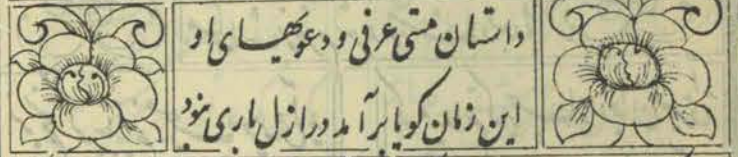 داستان مستی عرفی و دعویهای او
این زمان گویا برآمد در ازل باری نبود